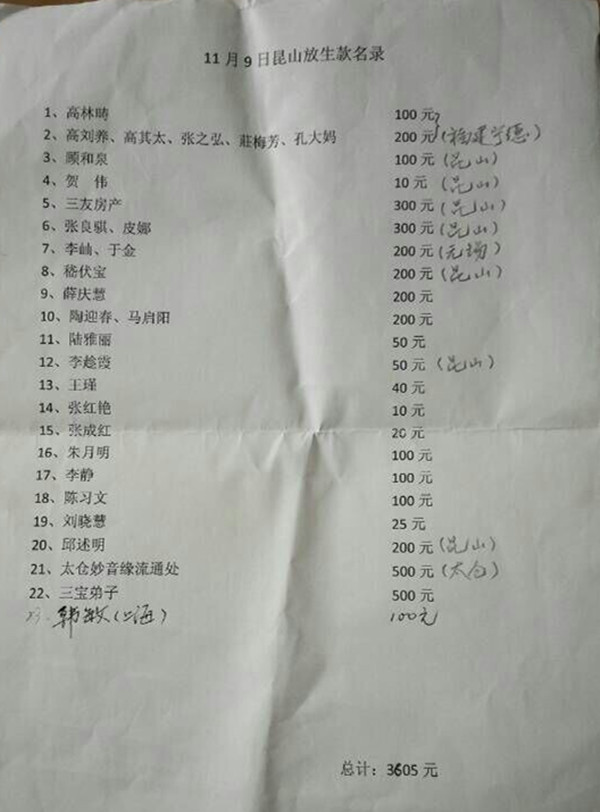 11月9日昆山放生款名录
1、高林畴 100元
2、高刘养、高其太、张之弘、莊梅芳、孔大妈 200元(福建宁德)
3、顾和泉 100元(昆山)
4、贺 伟 10元(昆山)
5、三友房产 300元(昆山)
6、张良骐、皮娜 300元(昆山)
7、李岫、于金 200元(无锡)
8、嵇伏宝 200元(昆山)
9、薛庆慧 200元
10、陶迎春、马启阳 200元
11、陆雅丽 50元
12、李趁霞 50元(昆山)
13、王瑾 40元
14、张红艳 10元
15、张成红 20元
16、朱月明 100元
17、李静 100元
18、陈习文 100元
19、刘晓慧 25元
20、邱述明 200元(昆山)
21、太仓妙音缘流通处 500元(太仓)
22、三宝弟子 500元
23、韩敏(上海) 100元
总计：3605元